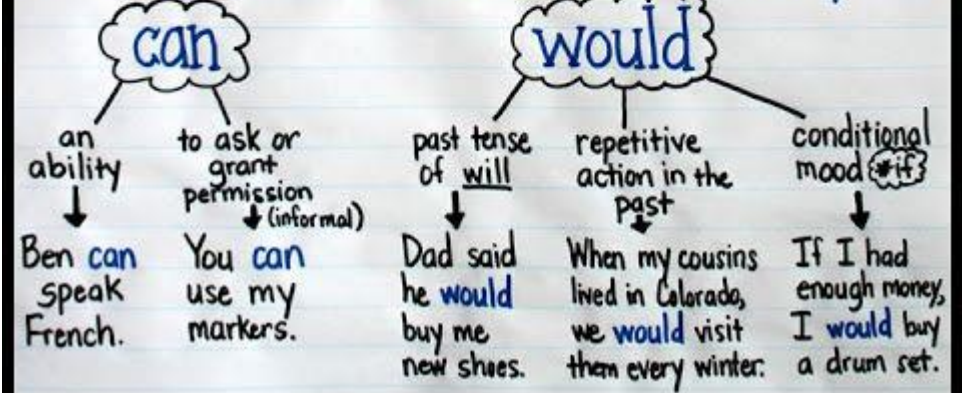 can
an
ability
Ben can
speak
French.
to ask or
grant
permission
(informal)
You can
use my
markers.
would
past tense
of will
Dad said
he would
buy me
new shoes.
repetitive
action in the
past
When my cousins
lived in Colorado,
we would visit
them every winter.
conditional
mood *if
If I had
enough money,
I would buy
a drum set.